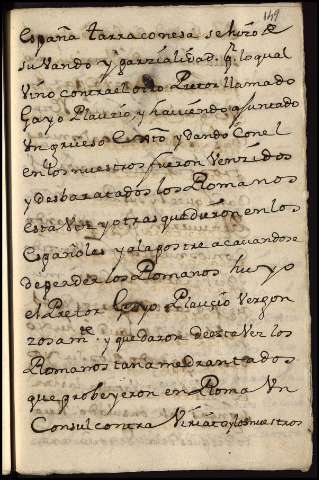 149
España tarraconesa se hizo de
su Vando y parzialidad. p.r lo qual
Vino contra el otro Pretor llamado
Gayo Plauzio, y haviendo ajuntado
Un grueso Exto y dando Con el
en los nuestros fueron Venzidos
y desbaratados los Romanos
esta Vez y otras que dieron en los
Españoles y a la postre acavandose
de perder los Romanos huyo
el Pretor Gayo Plauzio Vergon
zosamte. y quedaron de esta Vez los
Romanos tan amedrantados
que probeyeron en Roma Un
Consul contra Viriato y los nuestros